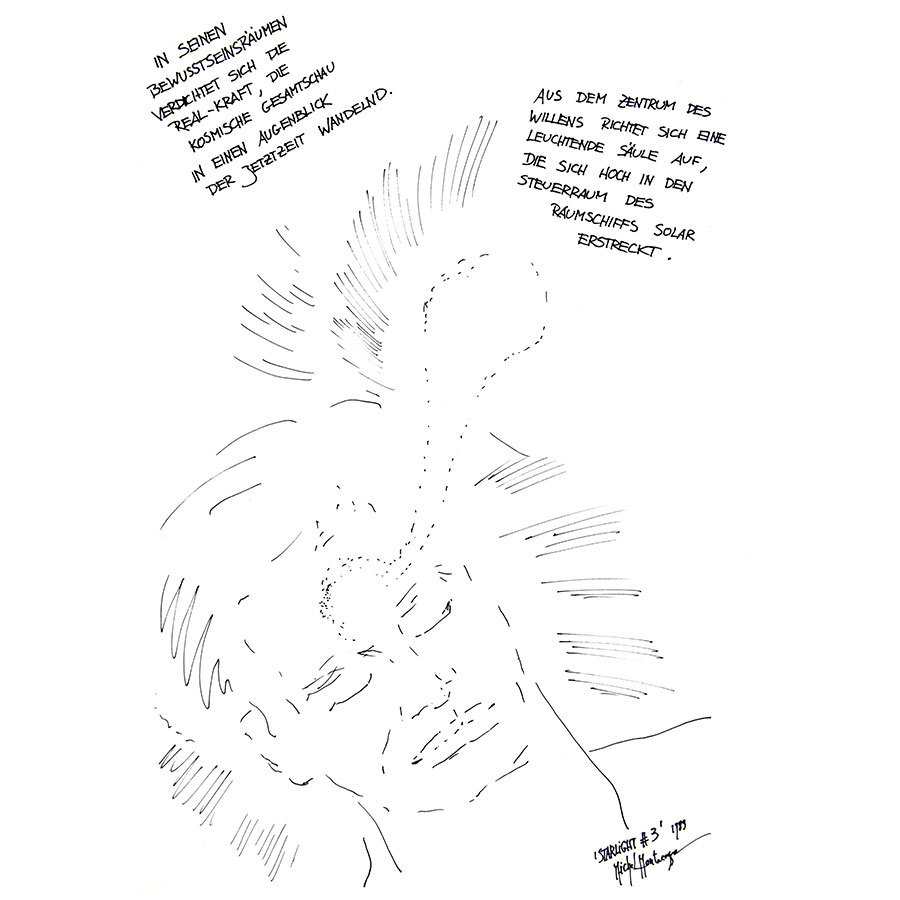 IN SEINEN
BEWUSSTSEINSRÄUMEN
VERDICHTET SICH DIE
REAL-KRAFT, DIE
KOSMISCHE GESAMTSCHAU
IN EINEN AUGENBLICK
DER JETZTZEIT WANDELND.
AUS DEM ZENTRUM DES
WILLENS RICHTET SICH EINE
LEUCHTENDE SÄULE AUF,
DIE SICH HOCH IN DEN
STEUERRAUM DES
RAUMSCHIFFS SOLAR
ERSTRECKT.
'STARLIGHT #3' 1989
Michel Montecrossa